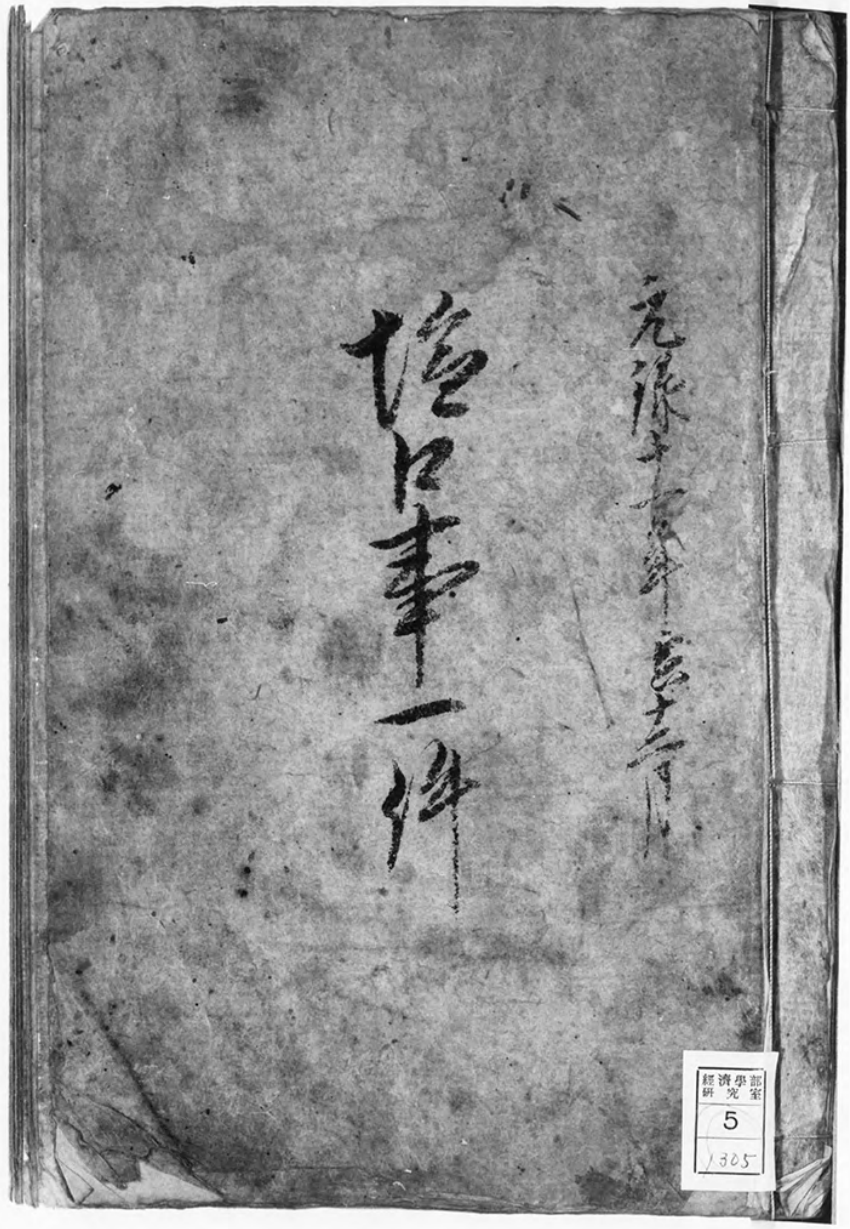 元禄十年十二月
塩口事一件
經濟學部
研究室
5
1305